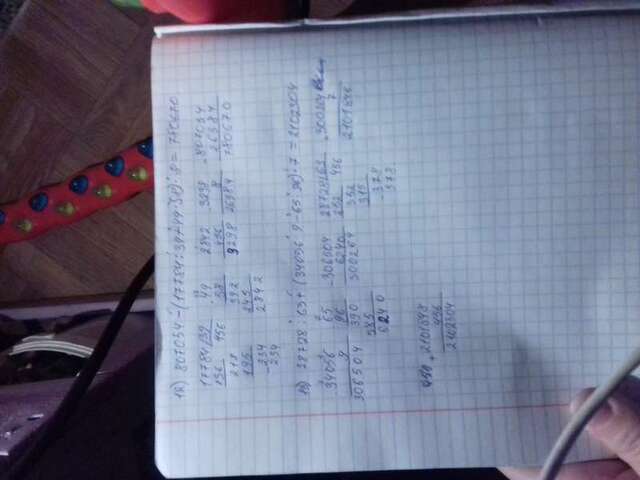 18) 807054-(17784:39+49·58)·8=780670
17784 39 49 2842 3298 807054
156 456 58 456 8 26384
218 392 3298 26384 780670
195 245
234 2842
234
19) 28728:63+(34056·9-65·96)·7=2102304
34056 65 306504 28728 63 300264
9 96 6240 252 456 7
306504 390 300264 352 2101848
585 315
6240 378
378
+2101848
456
2102304